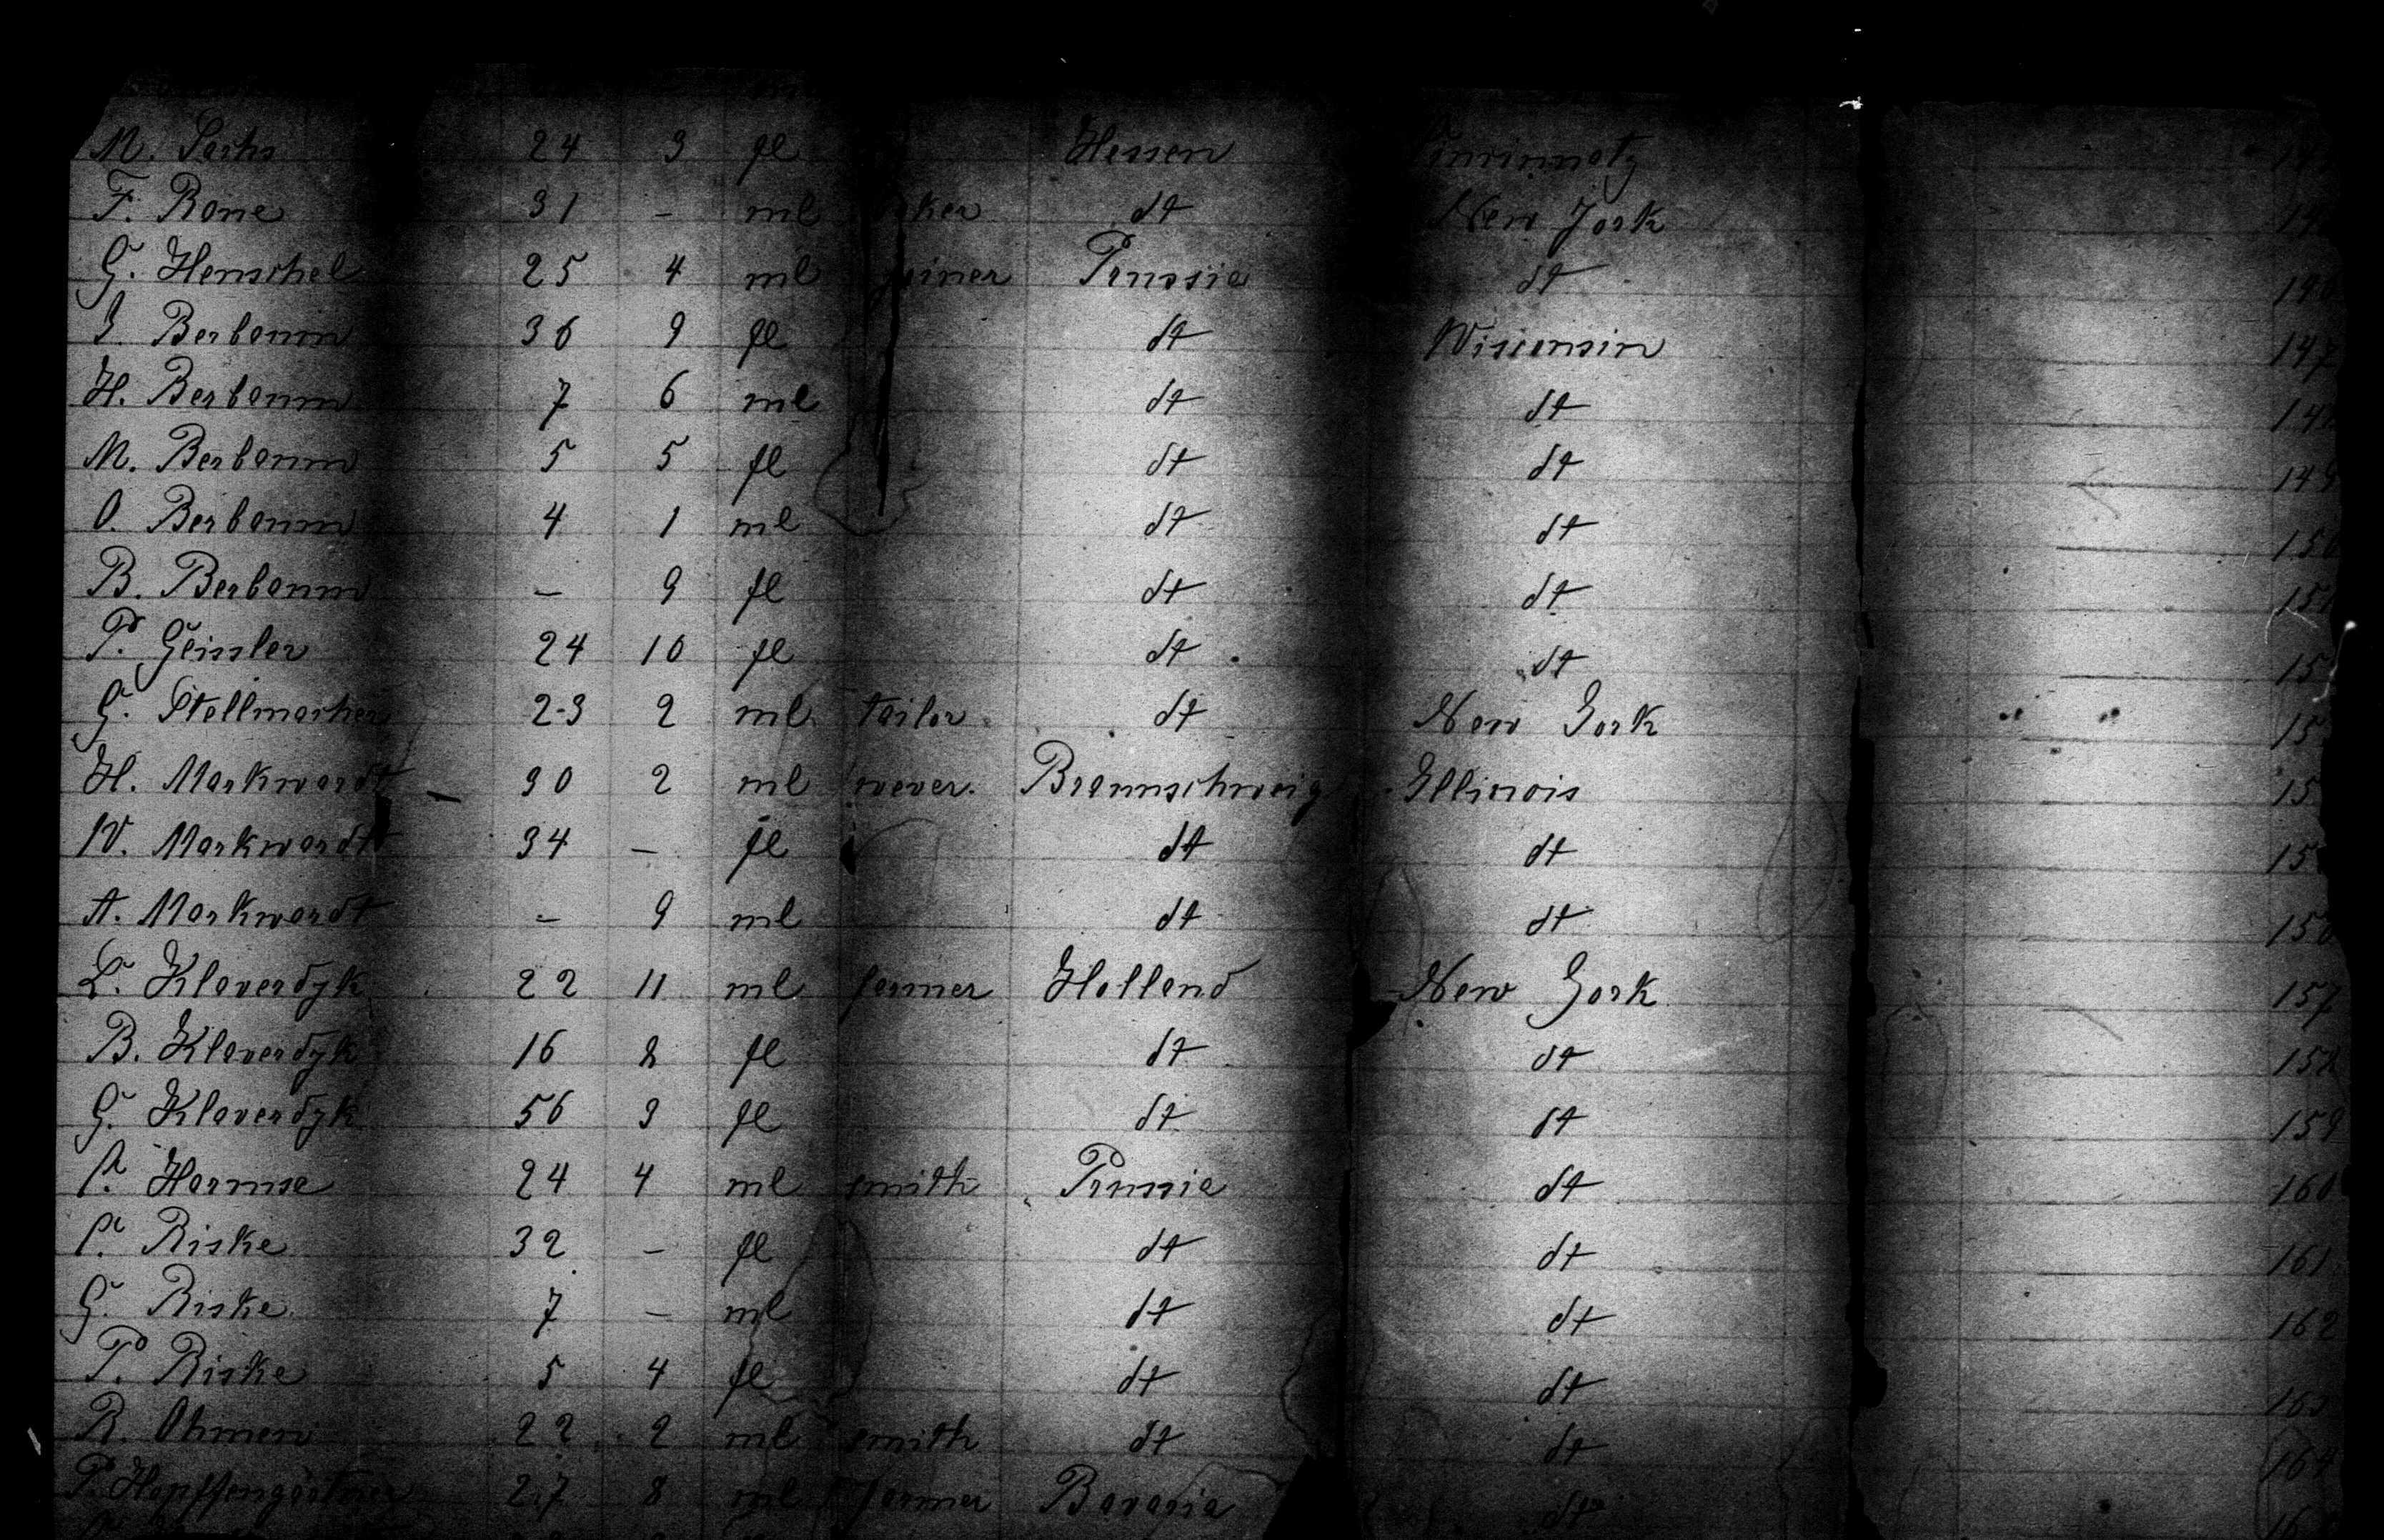 M. Sachs 24 3 fl Hessen Cincinnaty
F. Rone 31 - ml dt New York
G. Henschel 25 4 ml joiner Prussia dt
J. Berbaum 36 9 fl dt Wisconsin 147
H. Berbaum 7 6 ml dt dt
M. Berbaum 5 5 fl dt dt 149
O. Berbaum 4 1 ml dt dt 150
B. Berbaum - 9 fl dt dt
P. Geissler 24 10 fl dt dt
G. Stellmacher 23 2 ml tailor dt New York
H. Markwardt - 30 2 ml wever. Braunschweig Illinois
W. Markwardt 34 - fl dt dt
A. Markwardt - 9 ml dt dt
L. Klaverdyk 22 11 ml farmer Holland New York 157
B. Klaverdyk 16 2 fl dt dt 158
G. Klaverdyk 56 3 fl dt dt 159
Harmse 24 4 ml smith Prussia dt 160
Riske 32 - fl dt dt 161
G. Riske 7 - ml dt dt 162
P. Riske 5 4 fl dt dt 163
R. Ohmen 22 2 ml smith dt dt 164
P. Hopffengärtner 27 8 ml farmer Bavaria dt